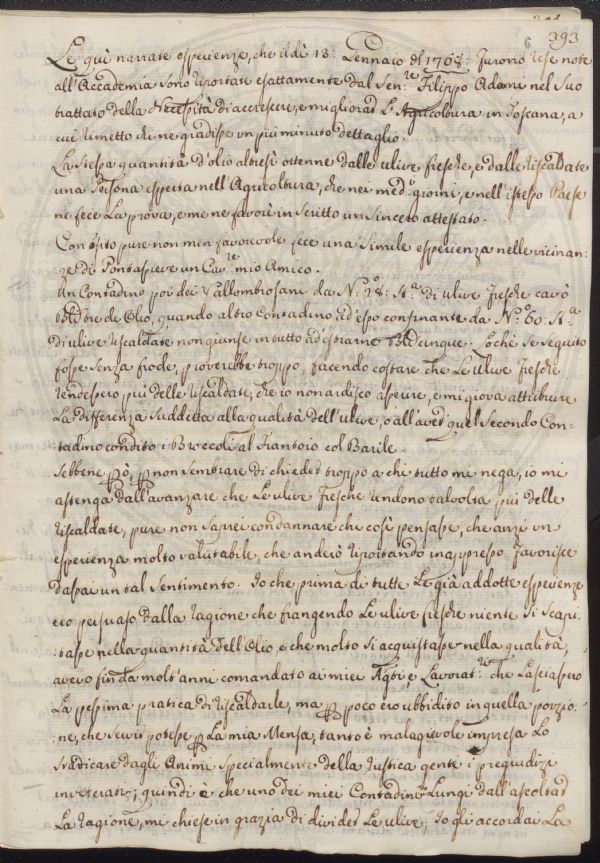 393
Le quì narrate esperienze, che il dì 13: Gennaio del 1768: furono rese note
all'Accademia sono riportate esattamente dal Sen:re Filippo Adami nel suo
trattato della Necessità di accrescere, e migliorar l'Agricoltura in Toscana, a
cui rimetto chi ne gradisse un più minuto dettaglio.
La stessa quantità d'olio altresì ottenne dalle ulive fresche, e dalle riscaldate
una Persona esperta nell'Agricoltura, che nei med:i giorni, e nell'istesso Paese
ne fece la prova, e me ne favorì in scritto un sincero attestato.
Con esito pure non men favorevole fece una simile esperienza nelle vicinan:
ze di Pontassieve un Cav:re mio Amico.
Un Contadino poi dei Vallombrosani da N:o 28: St:a di ulive fresche cavò
tre di Olio, quando altro Contadino ad esso confinante da N:o 60: St:a
di ulive riscaldate non giunse in tutto ad estrarne cinque. Lo chè se seguito
fosse senza frode, proverebbe troppo, facendo costare che le ulive fresche
rendessero più delle riscaldate, che io non ardisco asserire, e mi giova attribuire
la differenza suddetta alla qualità dell'ulive, o all'aver quel secondo Con-
tadino condito i Broccoli al frantoio col Barile.
Sebbene però, per non sembrare di chieder troppo a chi tutto mi nega, io mi
astenga dall'avanzare che le ulive fresche rendono talvolta più delle
riscaldate, pure non saprei condannare chi così pensasse, che anzi un
esperienza molto valutabile, che anderò riportando in appresso favorisce
assai un tal sentimento. Io che prima di tutte le già addotte esperienze
ero persuaso dalla ragione che frangendo le ulive fresche niente si scapi:
tasse nella quantità dell'Olio, e che molto si acquistasse nella qualità,
avevo fin da molt'anni comandato ai miei Agti e Lavorat:ri che lasciassero
la pessima pratica di riscaldarle, ma per poco ero ubbidito in quella porzio:
ne, che servir potesse per la mia Mensa, tanto è malagevole impresa lo
sradicare dagli Animi specialmente della rustica gente i pregiudizi
inveterati; quindi è che uno dei miei Contadini lungi dall'ascoltar
la ragione, mi chiese in grazia di divider le ulive; Io gli accordai la